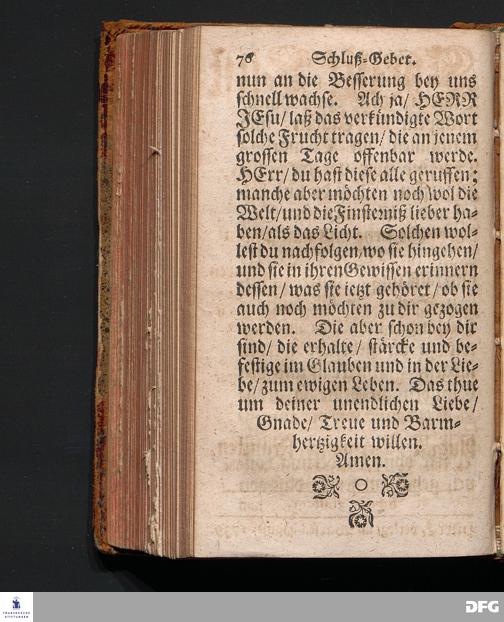 76 Schluß-Gebet.
nun an die Besserung bey uns
schnell wachse. Ach ja/ HERR
JEsu/ laß das verkündigte Wort
solche Frucht tragen/ die an jenem
grossen Tage offenbar werde.
HErr/ du hast diese alle geruffen:
manche aber möchten noch wol die
Welt/ und die Finsterniß lieber ha-
ben/ als das Licht. Solchen wol-
lest du nachfolgen/ wo sie hingehen/
und sie in ihren Gewissen erinnern
dessen/ was sie ietzt gehöret/ ob sie
auch noch möchten zu dir gezogen
werden. Die aber schon bey dir
sind/ die erhalte/ stärcke und be-
festige im Glauben und in der Lie-
be/ zum ewigen Leben. Das thue
um deiner unendlichen Liebe/
Gnade/ Treue und Barm-
hertzigkeit willen.
Amen.
FRANCKESCHE
STIFTUNGEN
DFG